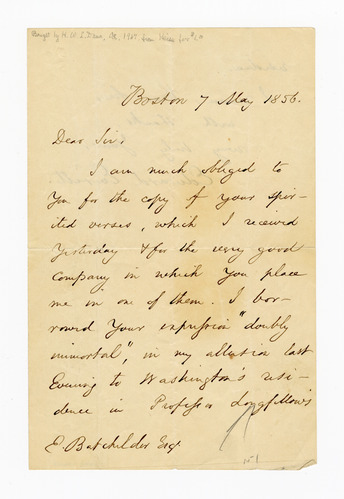 Bought by H. W. L. Dana, 1925 from
Boston 7 May 1856.
Dear Sir,
I am much obliged to
you for the copy of your spir-
ited verses, which I received
Yesterday & for the very good
Company in which you place
me in one of them. I bor-
rowed your expression "doubly
immortal", in my allusion last
Evening to Washington's resi-
dence in Professor Longfellow's
E. Batchelder Esq.